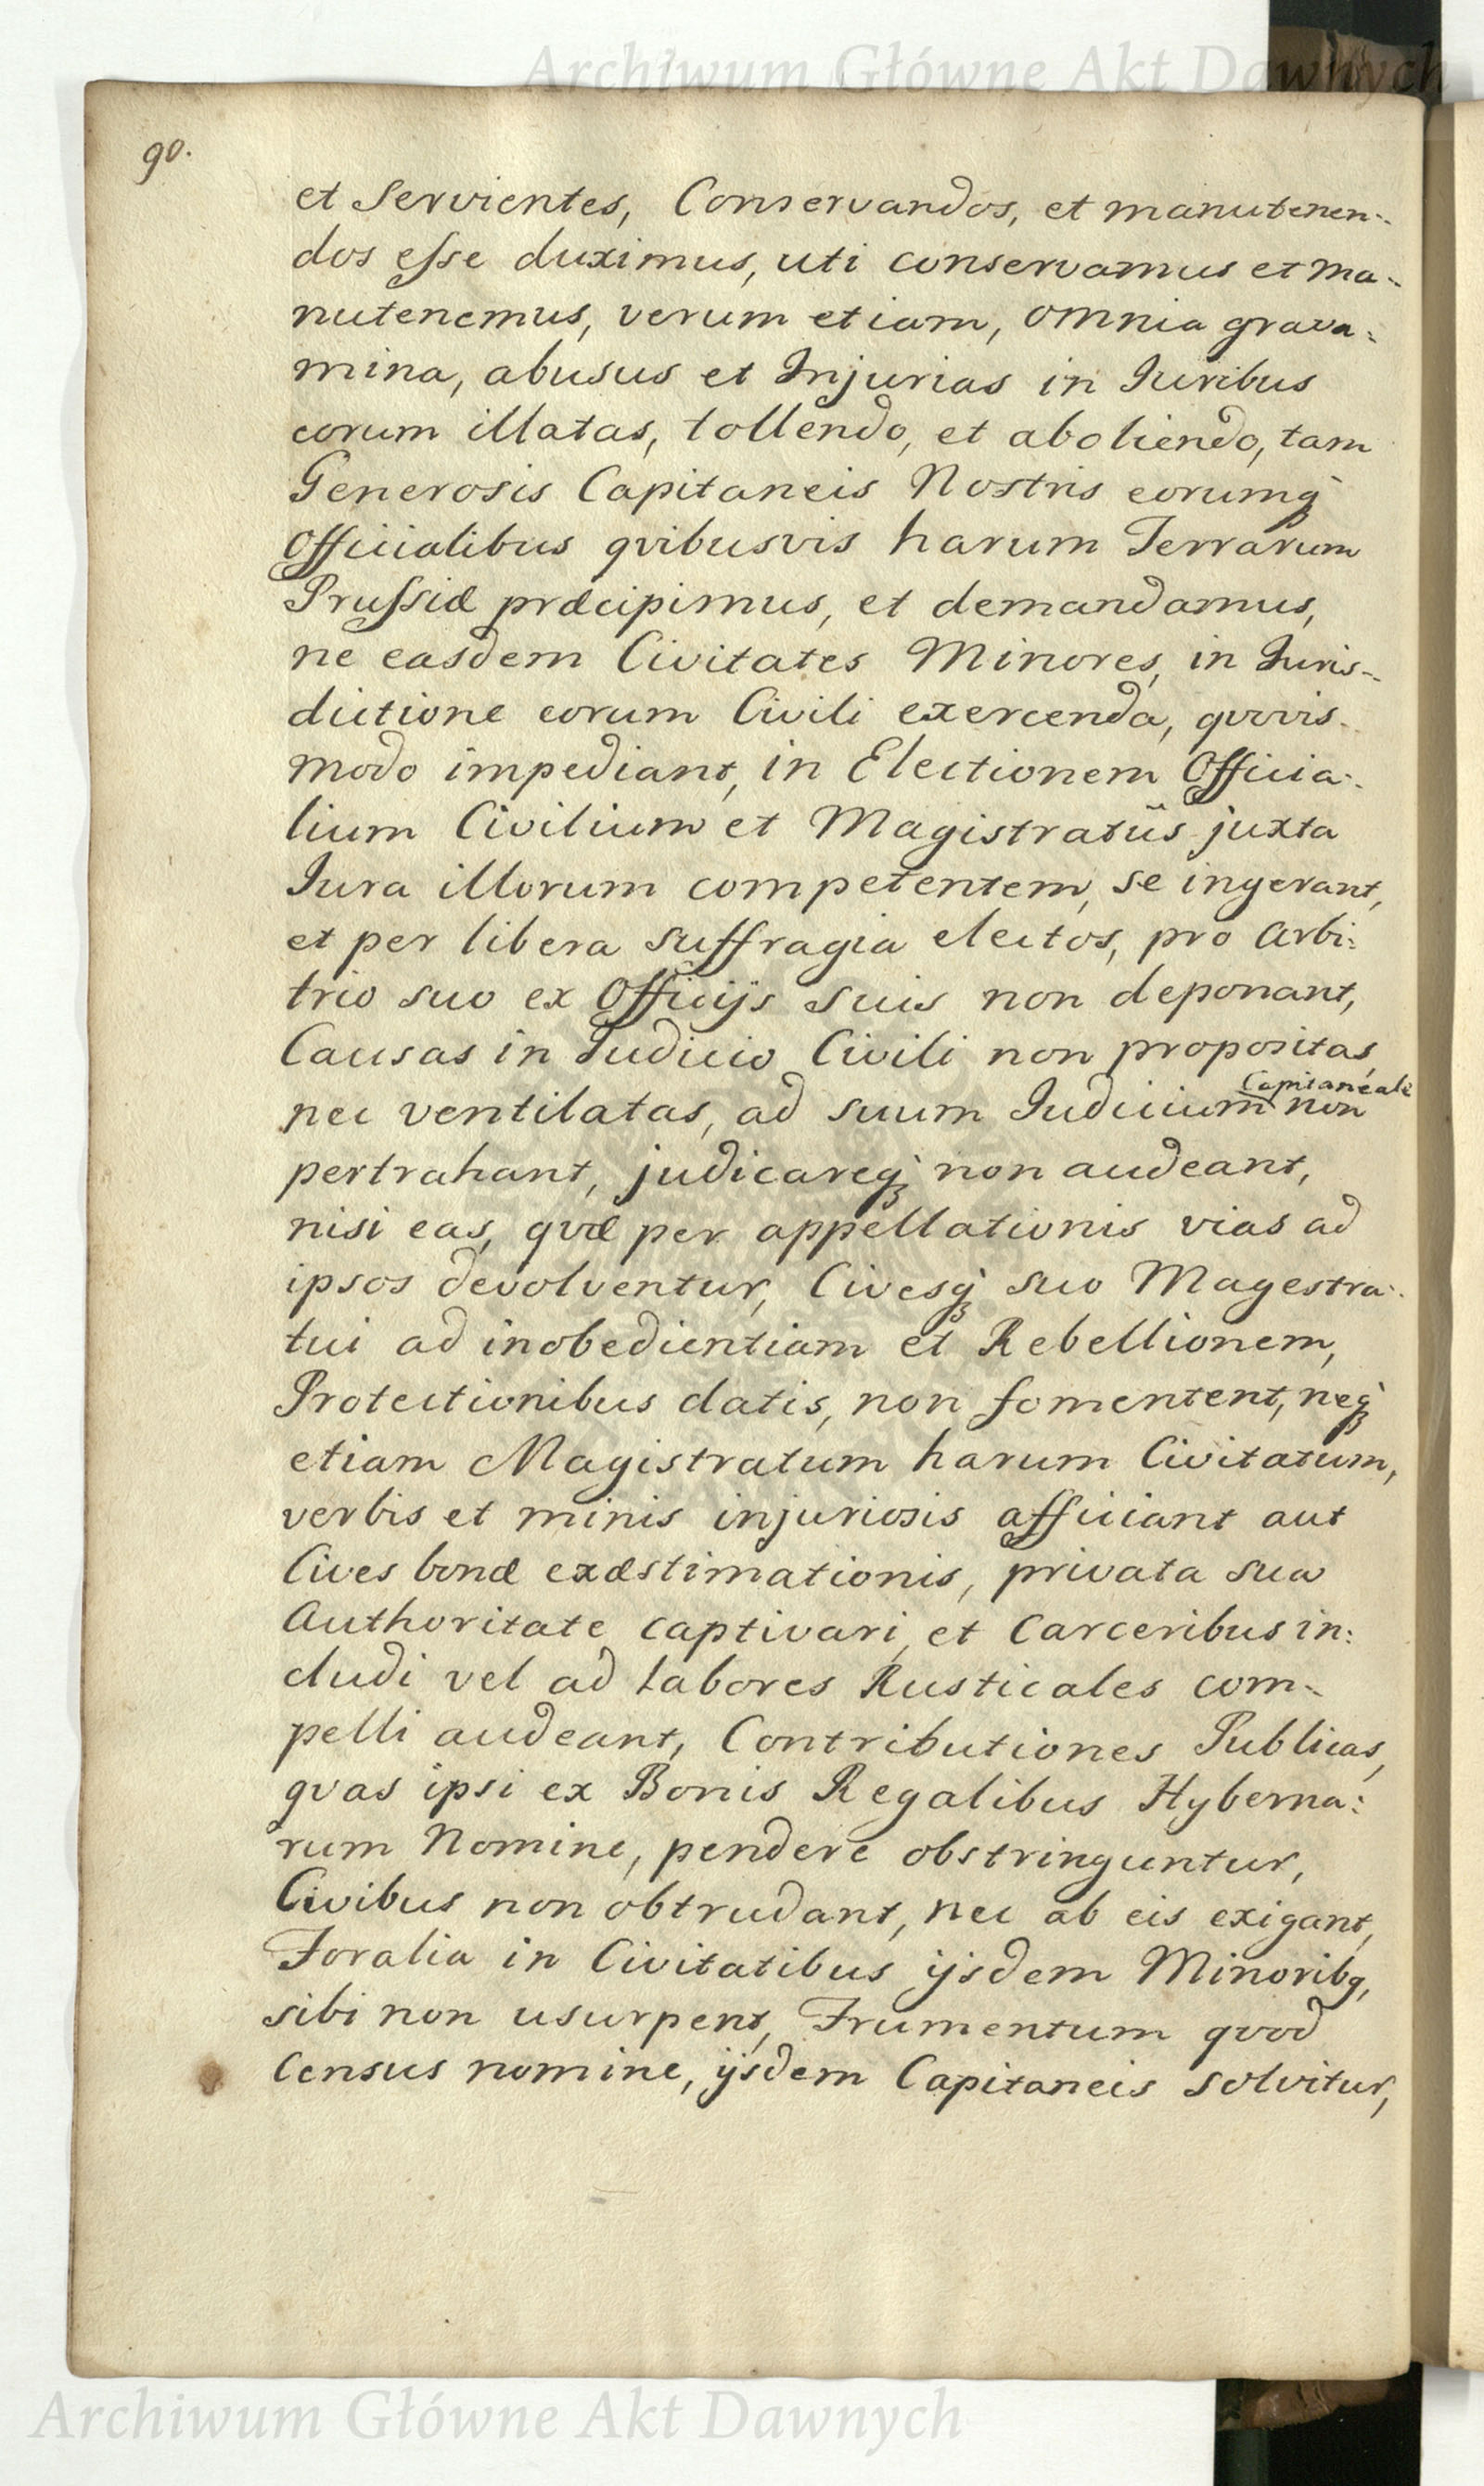 Archiwum Główne Akt Dawnych
90.
et Servientes, Conservandos, et manutenen-
dos esse duximus, uti conservamus et ma-
nutenemus, verum etiam, omnia grava-
mina, abusus et Injurias in Iuribus
eorum illatas, tollendo, et aboliendo, tam
Generosis Capitaneis Nostris eorumq́
Officialibus qvibusvis harum Terrarum
Prussiæ præcipimus, et demandamus,
ne easdem Civitates Minores, in Iuris-
dictione eorum Civili exercenda, qvovis-
modo impediant, in Electionem Officia-
lium Civilium et Magistratûs juxta
Iura illorum competentem, se ingerant,
et per libera suffragia electos, pro Arbi-
trio suo ex Officijs suis non deponant,
Causas in Iudicio Civili non propositas,
Capitaneale
nec ventilatas, ad suum Iudicium non
pertrahant, judicareq́ non audeant,
nisi eas, qvæ per appellationis vias ad
ipsos devolventur, Civesq́ suo Magestra-
tui ad inobedientiam et Rebellionem,
Protectionibus datis, non fomentent, neq́
etiam Magistratum harum Civitatum,
verbis et minis injuriosis afficiant aut
Cives bonæ exæstimationis, privata sua
Authoritate captivari, et Carceribus in-
cludi vel ad labores Rusticales com-
pelli audeant, Contributiones Publicas,
qvas ipsi ex Bonis Regalibus Hyberna-
rum Nomine, pendere obstringuntur,
Civibus non obtrudant, nec ab eis exigant,
Foralia in Civitatibus ijsdem Minoribq,
sibi non usurpent, Frumentum qvod
Census nomine, ijsdem Capitaneis solvitur,
Archiwum Główne Akt Dawnych